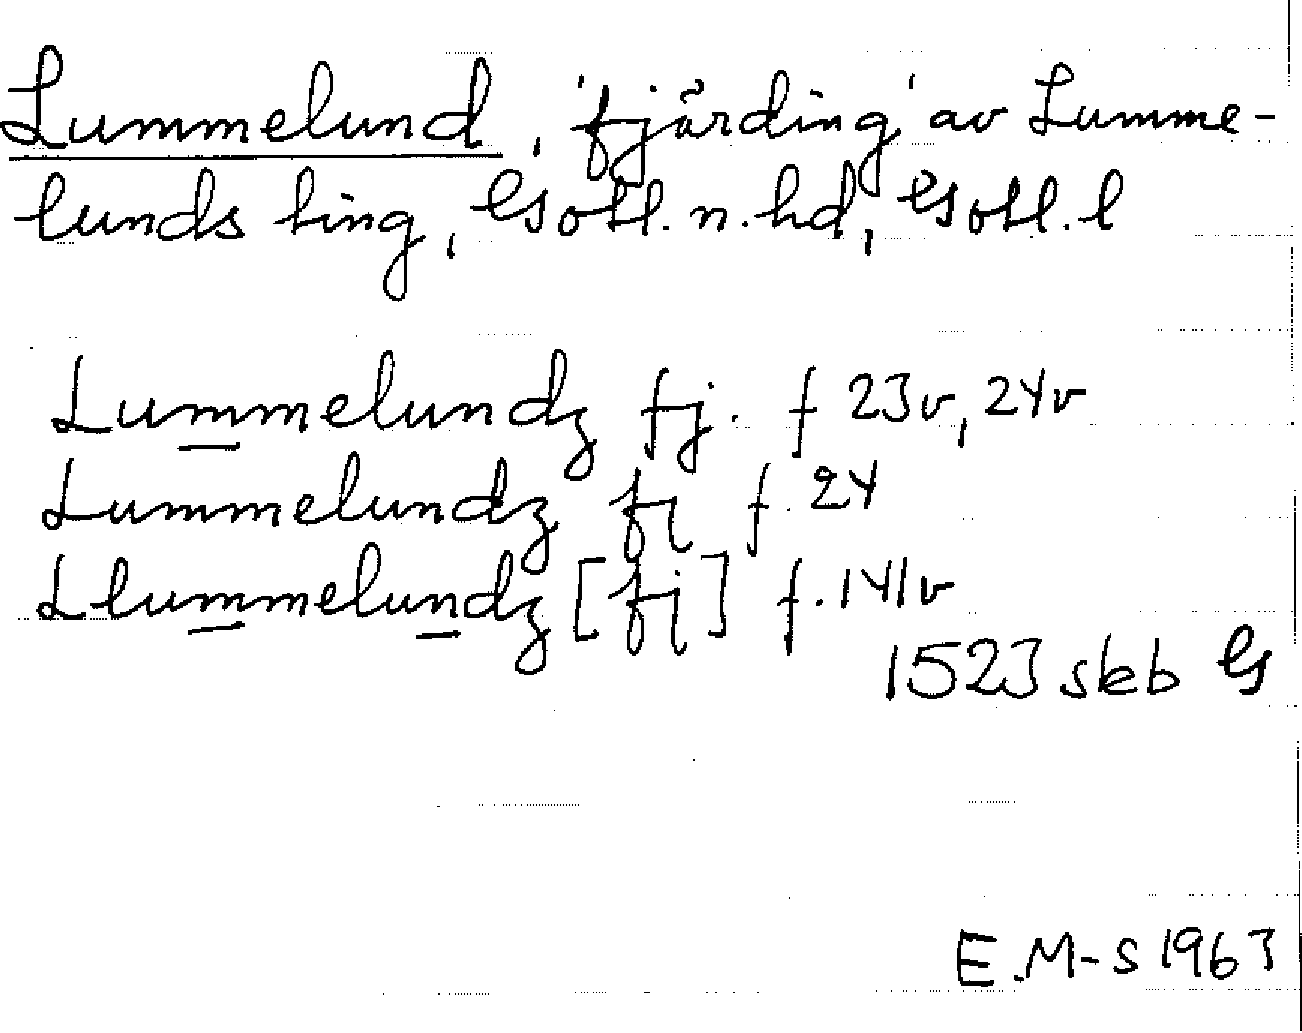 Lummelund, 'fjärding' av Lumme-
lunds ting, Gotl. n. hd, Gotl. l
Lummelundz fj. f 23v, 24v
Lummelundz fj f. 24
Llummelundz [fj] f. 141v
1523 skb G
E.M-S 1963